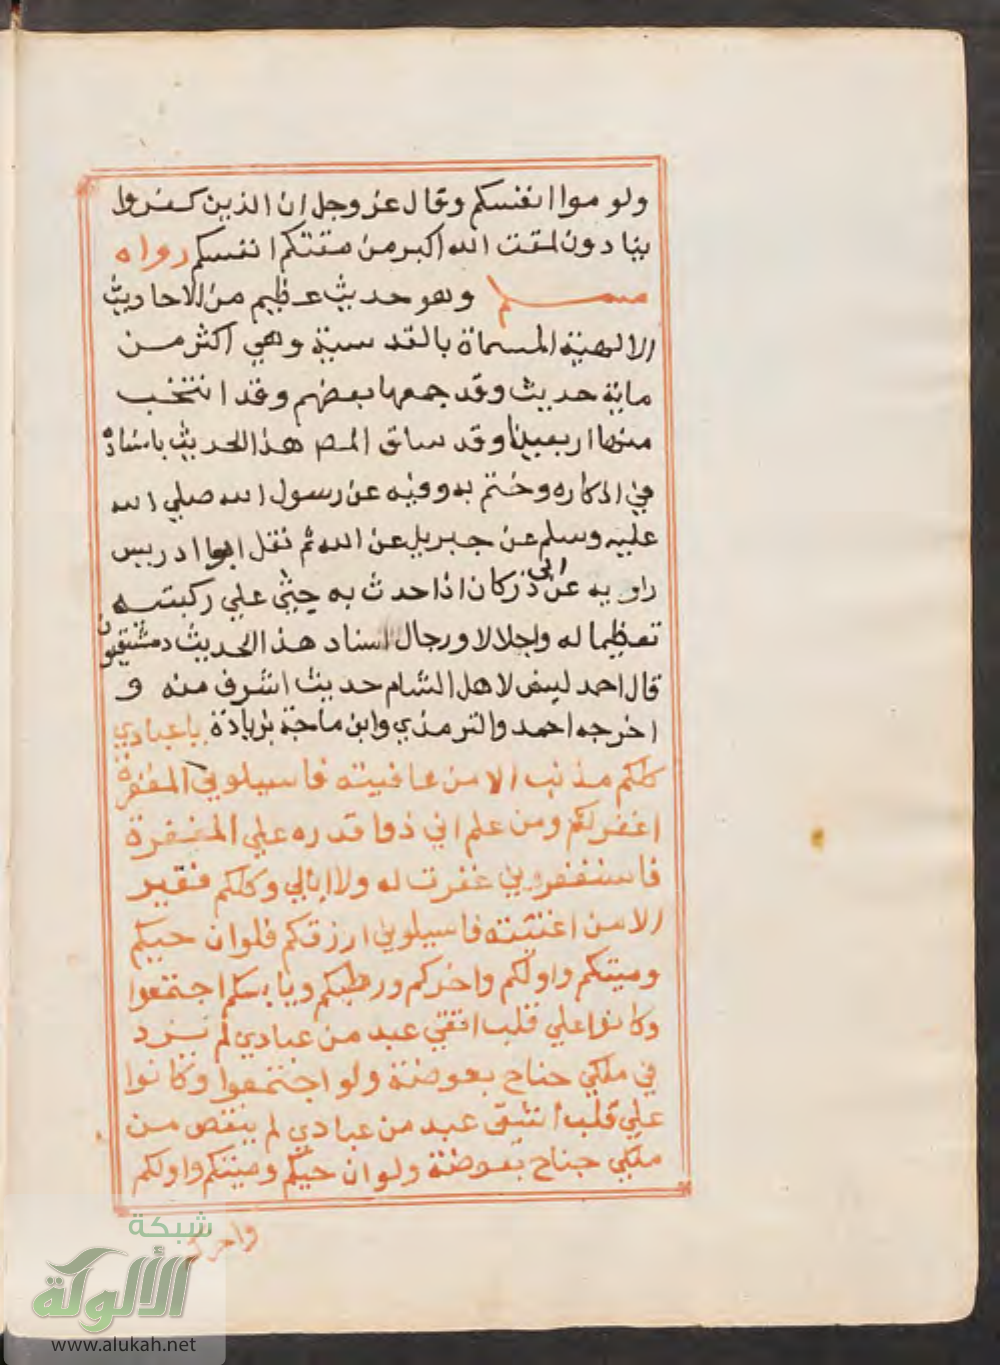 ولوموا انفسكم وقال عز وجل ان الذين كفروا
ينادون لمقت الله اكبر من مقتكم انفسكم رواه
مسلم وهو حديث عظيم من الاحاديث
الالهية المسماة بالقدسية وهي اكثر من
ماية حديث وقد جمعها بعضهم وقد انتخب
منها اربعينا وقد ساق المص هذا الحديث باسناده
في اذكاره وختم به وفيه عن رسول الله صلي الله
عليه وسلم عن جبريل عن الله ثم نقل ابوا ادريس
راويه عن ابي ذر كان اذا حدث به جثى علي ركبتيه
تعظيما له واجلالا ورجال اسناد هذا الحديث دمشقيون
قال احمد ليس لاهل الشام حديث اشرف منه و
اخرجه احمد والترمذي وابن ماجة بزيادة يا عبادي
كلكم مذنب الا من عافيته فاسيلوني المغفرة
اغفر لكم ومن علم اني ذوا قدره علي المغفرة
فاستغفروني غفرت له ولا ابالي وكلكم فقير
الا من اغنيته فاسيلوني ارزقكم فلوان حيكم
وميتكم واولكم واخركم ورطبكم ويابسكم اجتمعوا
وكانوا علي قلب اتقي عبد من عبادي لم يزد
في ملكي جناح بعوضة ولو اجتمعوا وكانوا
علي قلب اشقى عبد من عبادي لم ينقص من
ملكي جناح بعوضة ولو ان حيكم وميتكم واولكم
شبكة
الألوكة
www.alukah.net